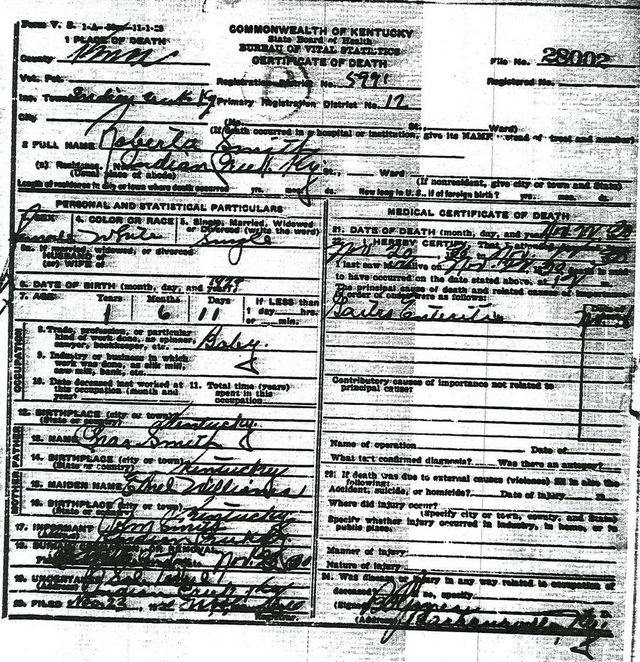 Form V. S. 1-A
COMMONWEALTH OF KENTUCKY
State Board of Health
BUREAU OF VITAL STATISTICS
CERTIFICATE OF DEATH
1 PLACE OF DEATH
County Knox
File No. 28002
Vot. Pct.
Registration District No. 5991
Registered No.
Inc. Town Indian Creek Ky Primary Registration District No. 12
City
(No. St., Ward)
(If death occurred in a hospital or institution, give its NAME instead of street and number)
2 FULL NAME Roberta Smith
(a) Residence. Indian Creek. Ky. St., Ward
(Usual place of abode)
(If nonresident, give city or town and State)
Length of residence in city or town where death occurred yrs. mos. ds. How long in U. S., if of foreign birth? yrs. mos. ds.
PERSONAL AND STATISTICAL PARTICULARS
3. SEX 4. COLOR OR RACE 5. Single, Married, Widowed or Divorced (write the word)
Female White Single
5a. If married, widowed, or divorced
HUSBAND of
(or) WIFE of
6. DATE OF BIRTH (month, day, and
7. AGE Years Months Days If LESS than
1 6 11 1 day hrs.
or min.
OCCUPATION
8. Trade, profession, or particular
kind of work done, as spinner,
sawyer, bookkeeper, etc. Baby
9. Industry or business in which
work was done, as silk mill,
saw mill, bank, etc.
10. Date deceased last worked at 11. Total time (years)
this occupation (month and spent in this
year) occupation
12. BIRTHPLACE (city or town) Kentucky
(State or country)
FATHER
13. NAME Chas Smith
14. BIRTHPLACE (city or town) Kentucky
(State or country)
MOTHER
15. MAIDEN NAME Ethel Williams
16. BIRTHPLACE (city or town) Kentucky
(State or country)
17. INFORMANT
(Address) Indian Creek Ky
18. BURIAL, CREMATION OR REMOVAL
19. UNDERTAKER
(Address) Indian Creek Ky
20. FILED Nov 23
Registrar.
MEDICAL CERTIFICATE OF DEATH
21. DATE OF DEATH (month, day, and year) Nov 22
22. I HEREBY CERTIFY, That I attended
I last saw alive on Nov
to have occurred on the date stated above, at
The principal cause of death and related causes of importance
in order of onset were as follows:
Gastro Enteritis
Contributory causes of importance not related to
principal cause:
Name of operation Date of
What test confirmed diagnosis? Was there an autopsy?
23. If death was due to external causes (violence) fill in also the
following:
Accident, suicide, or homicide? Date of injury
Where did injury occur?
(Specify city or town, county, and State)
Specify whether injury occurred in industry, in home, or in
public place.
Manner of injury
Nature of injury
24. Was disease or injury in any way related to occupation of
deceased? no, specify
(Signed)
(Address) Barbourville, Ky.